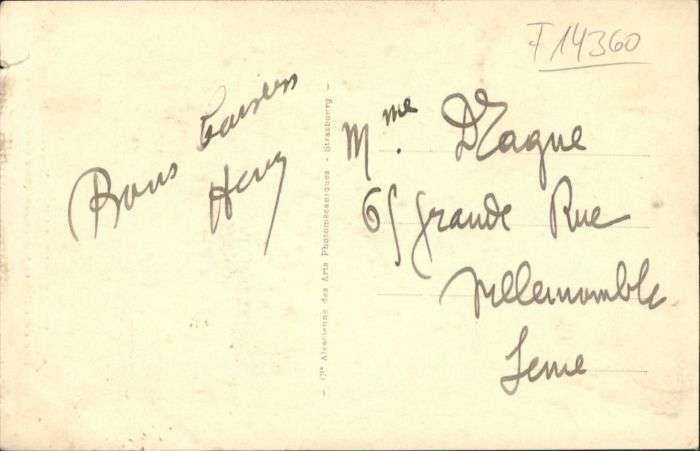 T 14360
Bons baisers
Henry
Mme.
65 grande Rue
Villemomble
Seine
- Cie Alsacienne des Arts Photomécaniques - Strasbourg -